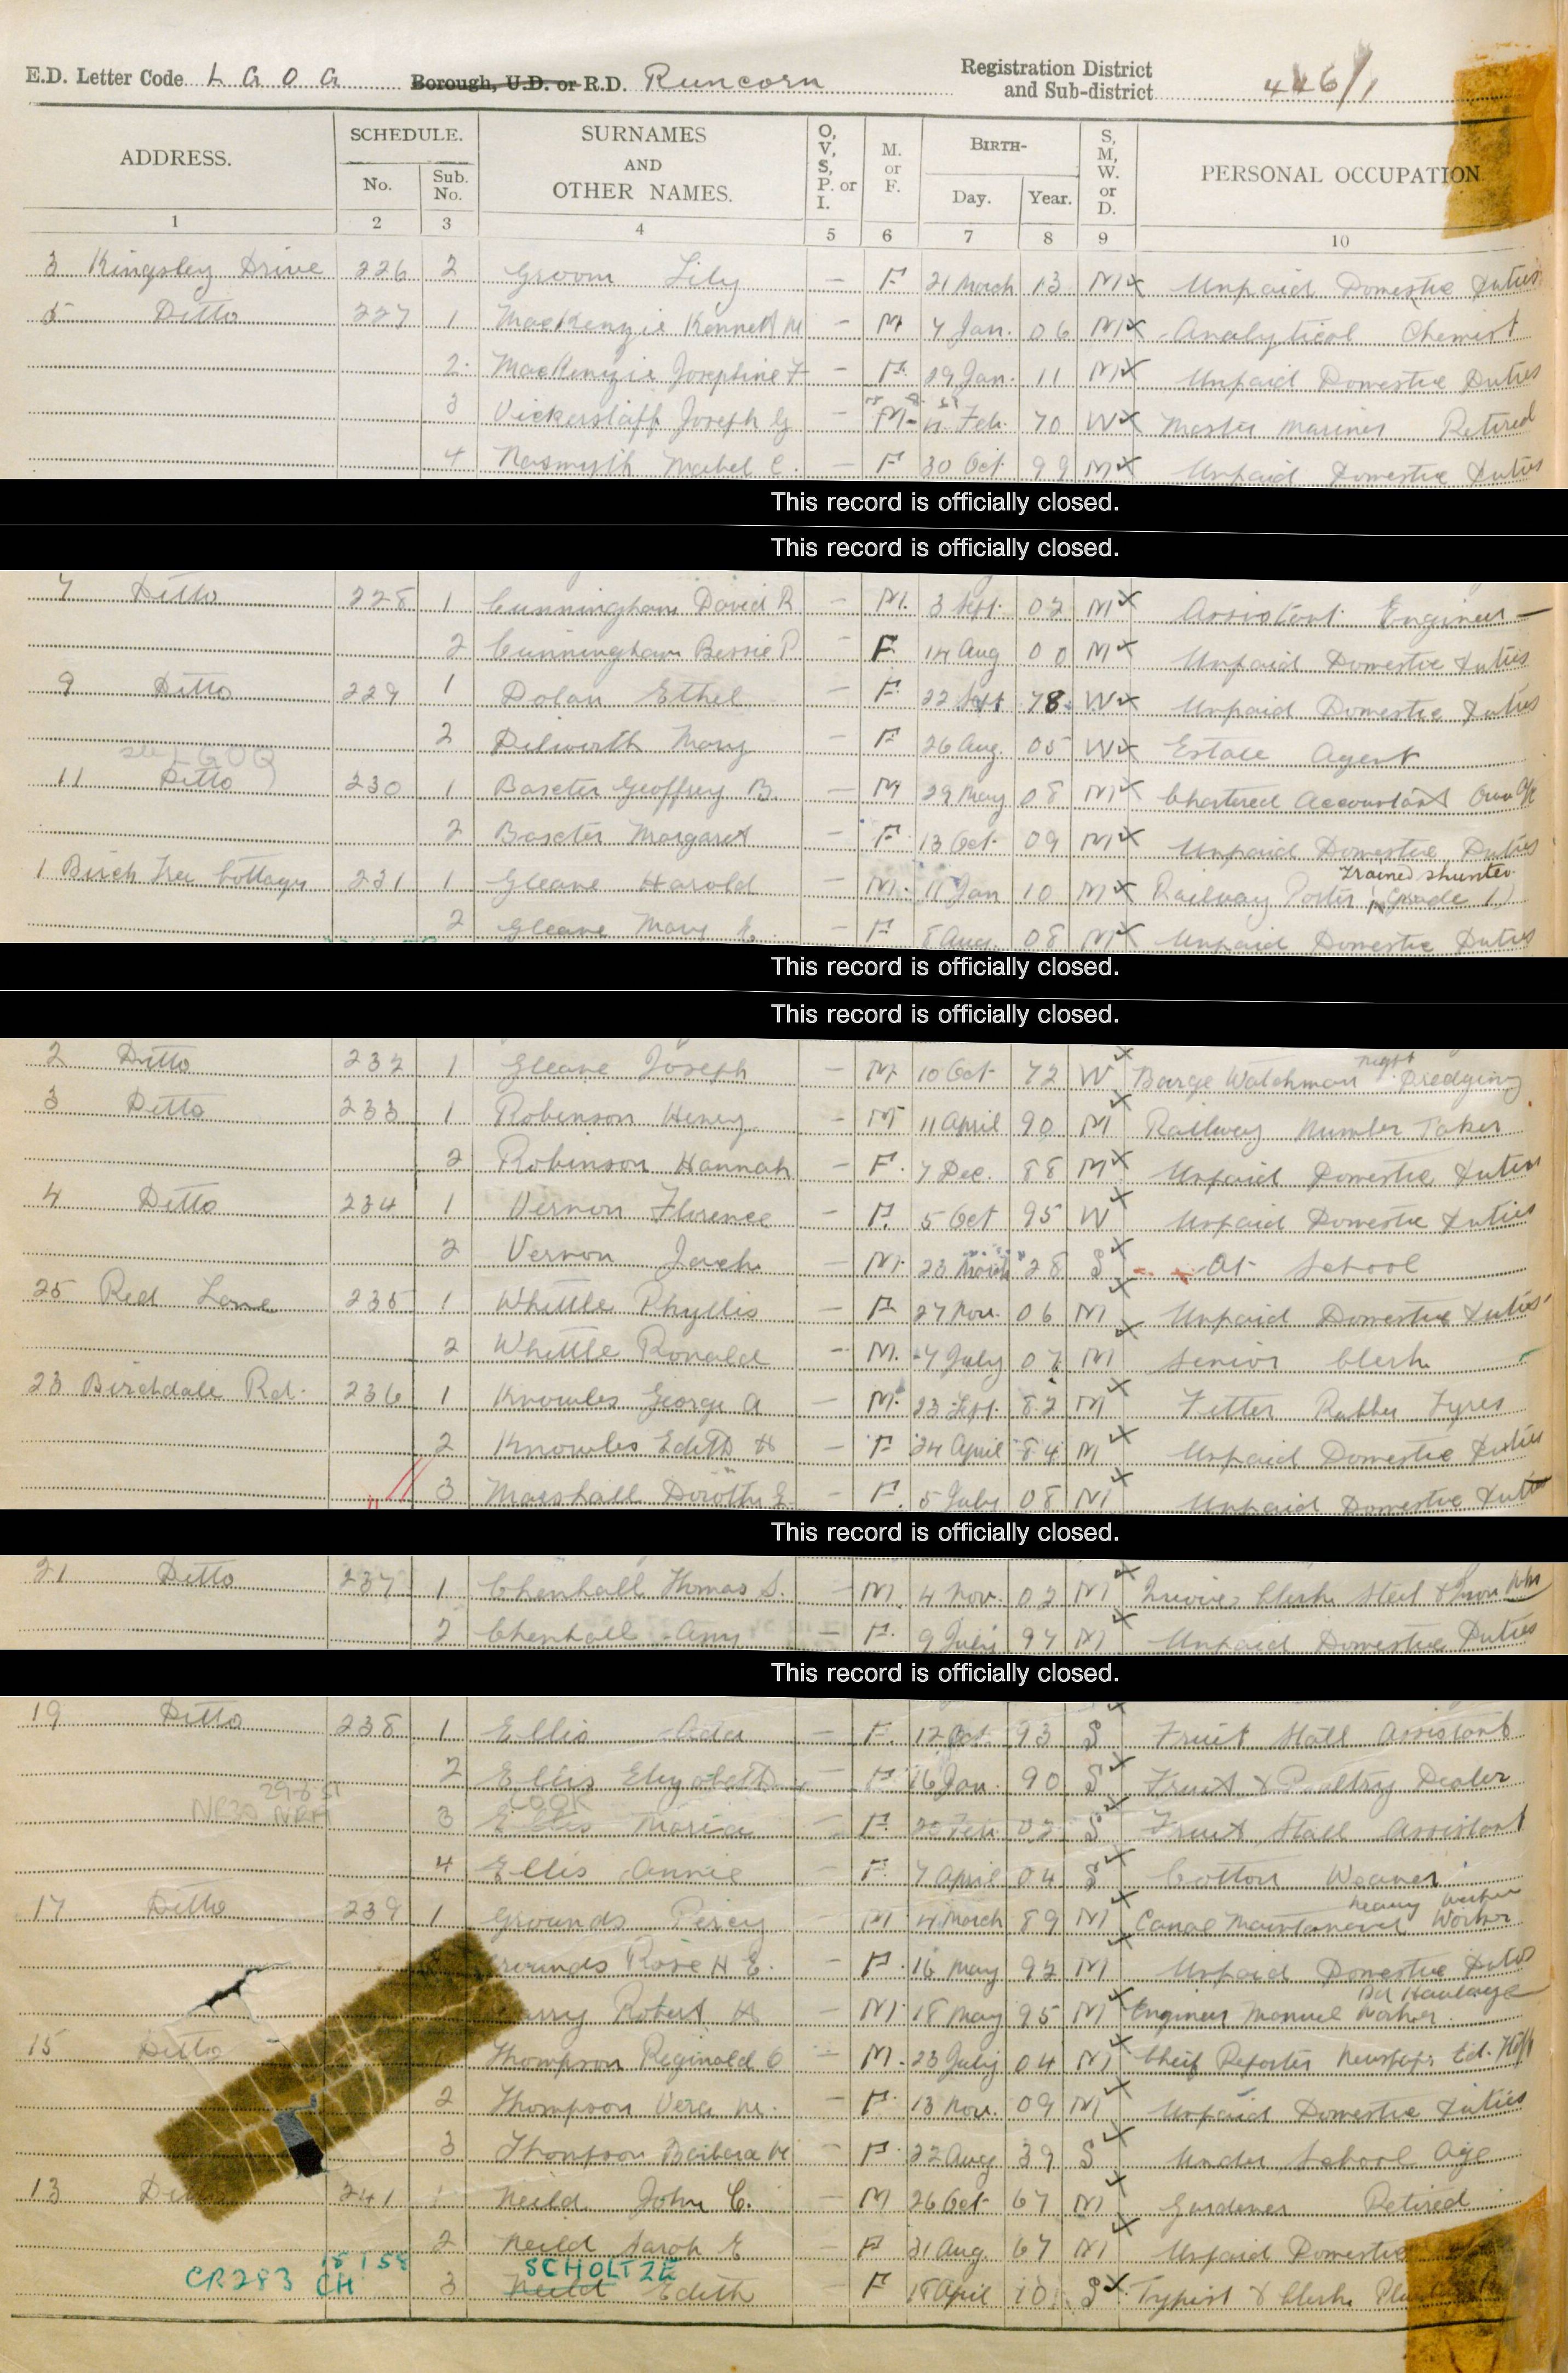 E.D. Letter Code L G O G Borough, U.D. or R.D. Runcorn Registration District and Sub-district 446/1
ADDRESS. SCHEDULE. No. Sub. No. SURNAMES AND OTHER NAMES. O, V, S, P. or I. M. or F. BIRTH- Day. Year. S, M, W. or D. PERSONAL OCCUPATION
1 2 3 4 5 6 7 8 9 10
3 Kingsley Drive 226 2 Groom Lily - F 21 March 13 M Unpaid Domestic Duties
5 Ditto 227 1 MacKenzie Kenneth M - M 7 Jan. 06 M Analytical Chemist
2 MacKenzie Josephine F - F 29 Jan. 11 M Unpaid Domestic Duties
3 Vickerstaff Joseph G - M Feb. 70 W Master Mariner Retired
4 Nasmyth Mabel C. - F 30 Oct. 99 M Unpaid Domestic Duties
This record is officially closed.
This record is officially closed.
7 Ditto 228 1 Cunningham David R - M. 3 Sept. 02 M Assistant Engineer
2 Cunningham Bessie P - F 14 Aug 00 M Unpaid Domestic Duties
9 Ditto 229 1 Dolan Ethel - F 22 Sept 78 W Unpaid Domestic Duties
2 Dilworth Mary - F 26 Aug. 05 W Estate Agent
see LGOQ
11 Ditto 230 1 Baxter Geoffrey B. - M 29 May 08 M Chartered Accountant Own
2 Baxter Margaret - F 13 Oct. 09 M Unpaid Domestic Duties
Trained shunter
1 Birch Tree Cottages 231 1 Gleave Harold - M. 11 Jan 10 M Railway Porter (Grade 1)
2 Gleave Mary E. - F 8 Aug. 08 M Unpaid Domestic Duties
This record is officially closed.
This record is officially closed.
2 Ditto 232 1 Gleave Joseph - M 10 Oct 72 W Barge Watchman night Dredging
3 Ditto 233 1 Robinson Henry - M 11 April 90 M Railway Number Taker
2 Robinson Hannah - F. 7 Dec. 88 M Unpaid Domestic Duties
4 Ditto 234 1 Vernon Florence - F. 5 Oct 95 W Unpaid Domestic Duties
2 Vernon Jack - M. 23 March 28 S At School
25 Red Lane 235 1 Whittle Phyllis - F 27 Nov. 06 M Unpaid Domestic Duties
2 Whittle Ronald - M. 7 July 07 M Senior Clerk
23 Birchdale Rd. 236 1 Knowles George A - M. 23 Sept. 82 M Fitter Rubber Tyres
2 Knowles Edith H - F 24 April 84 M Unpaid Domestic Duties
3 Marshall Dorothy E. - F. 5 July 08 M Unpaid Domestic Duties
This record is officially closed.
21 Ditto 237 1 Chenhall Thomas S. - M. 4 Nov. 02 M Invoice Clerk Steel & Iron
2 Chenhall Amy - F. 9 July 97 M Unpaid Domestic Duties
This record is officially closed.
19 Ditto 238 1 Ellis Ada - F. 12 Oct 93 S Fruit Stall Assistant
2 Ellis Elizabeth - F 16 Jan. 90 S Fruit & Poultry Dealer
COOK
3 Ellis Maria - F. 20 Feb 02 S Fruit Stall Assistant
4 Ellis Annie - F. 7 April 04 S Cotton Weaver
heavy worker
17 Ditto 239 1 Grounds Percy - M 4 March 89 M Canal Maintenance Worker
Grounds Rose H E. - F. 16 May 92 M Unpaid Domestic Duties
Rd Haulage
Robert H - M 18 May 95 M Engineer Manual Worker
15 Ditto Thompson Reginald C - M. 23 July 04 M Cheif Reporter Newspapr Ed.
2 Thompson Vera M. - F. 13 Nov. 09 M Unpaid Domestic Duties
3 Thompson Barbara M - F. 22 Aug 39 S Under School Age
13 Ditto 241 Neild John C. - M 26 Oct 67 M Gardener Retired
2 Neild Sarah E - F 21 Aug. 67 M Unpaid Domestic
CR283 CH 15 1 58 SCHOLTZE
3 Neild Edith - F 18 April 10 S Typist & Clerk